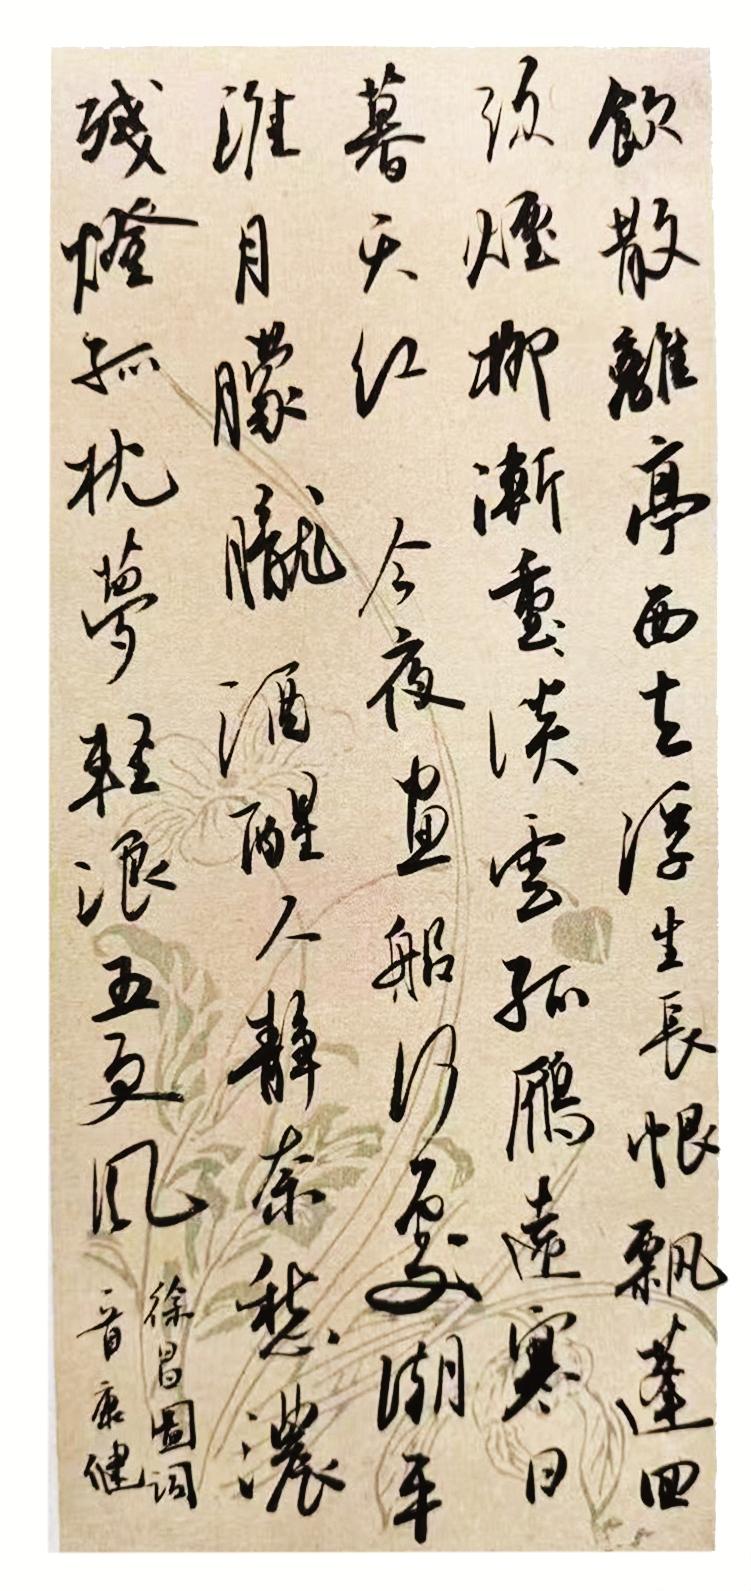 飲散離亭西去浮生長恨飄蓬回
頭煙柳漸重〻淡雲孤鴈遠寒日
暮天紅 今夜畫船何處潮平
淮月朦朧酒醒人靜奈愁濃
殘燈孤枕夢輕浪五更風
徐昌圖詞
一首康健